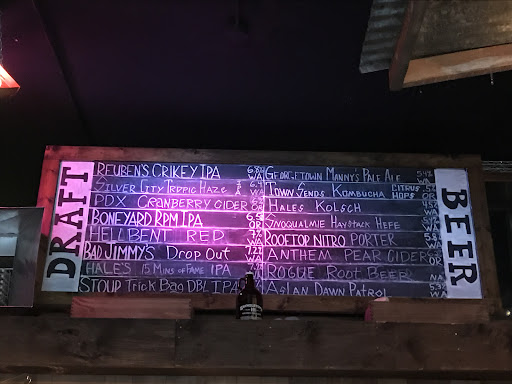 DRAFT
BEER
REUBEN'S CRIKEY IPA 6.8% WA
SILVER CITY TROPIC HAZE IPA WA
PDX CRANBERRY CIDER OR
BONEYARD RPM IPA 6.5 OR
HELLBENT RED WA
BAD JIMMY'S DROP OUT WA
HALE'S 15 MINS OF FAME IPA WA
STOUP TRICK BAG DBL IPA WA
GEORGETOWN MANNY'S PALE ALE 5.4% WA
TOWNSENDS KOMBUCHA CITRUS HOPS OR
HALES KOLSCH WA
SNOQUALMIE HAYSTACK HEFE WA
ROOFTOP NITRO PORTER WA
ANTHEM PEAR CIDER OR
ROGUE ROOT BEER
ASLAN DAWN PATROL WA